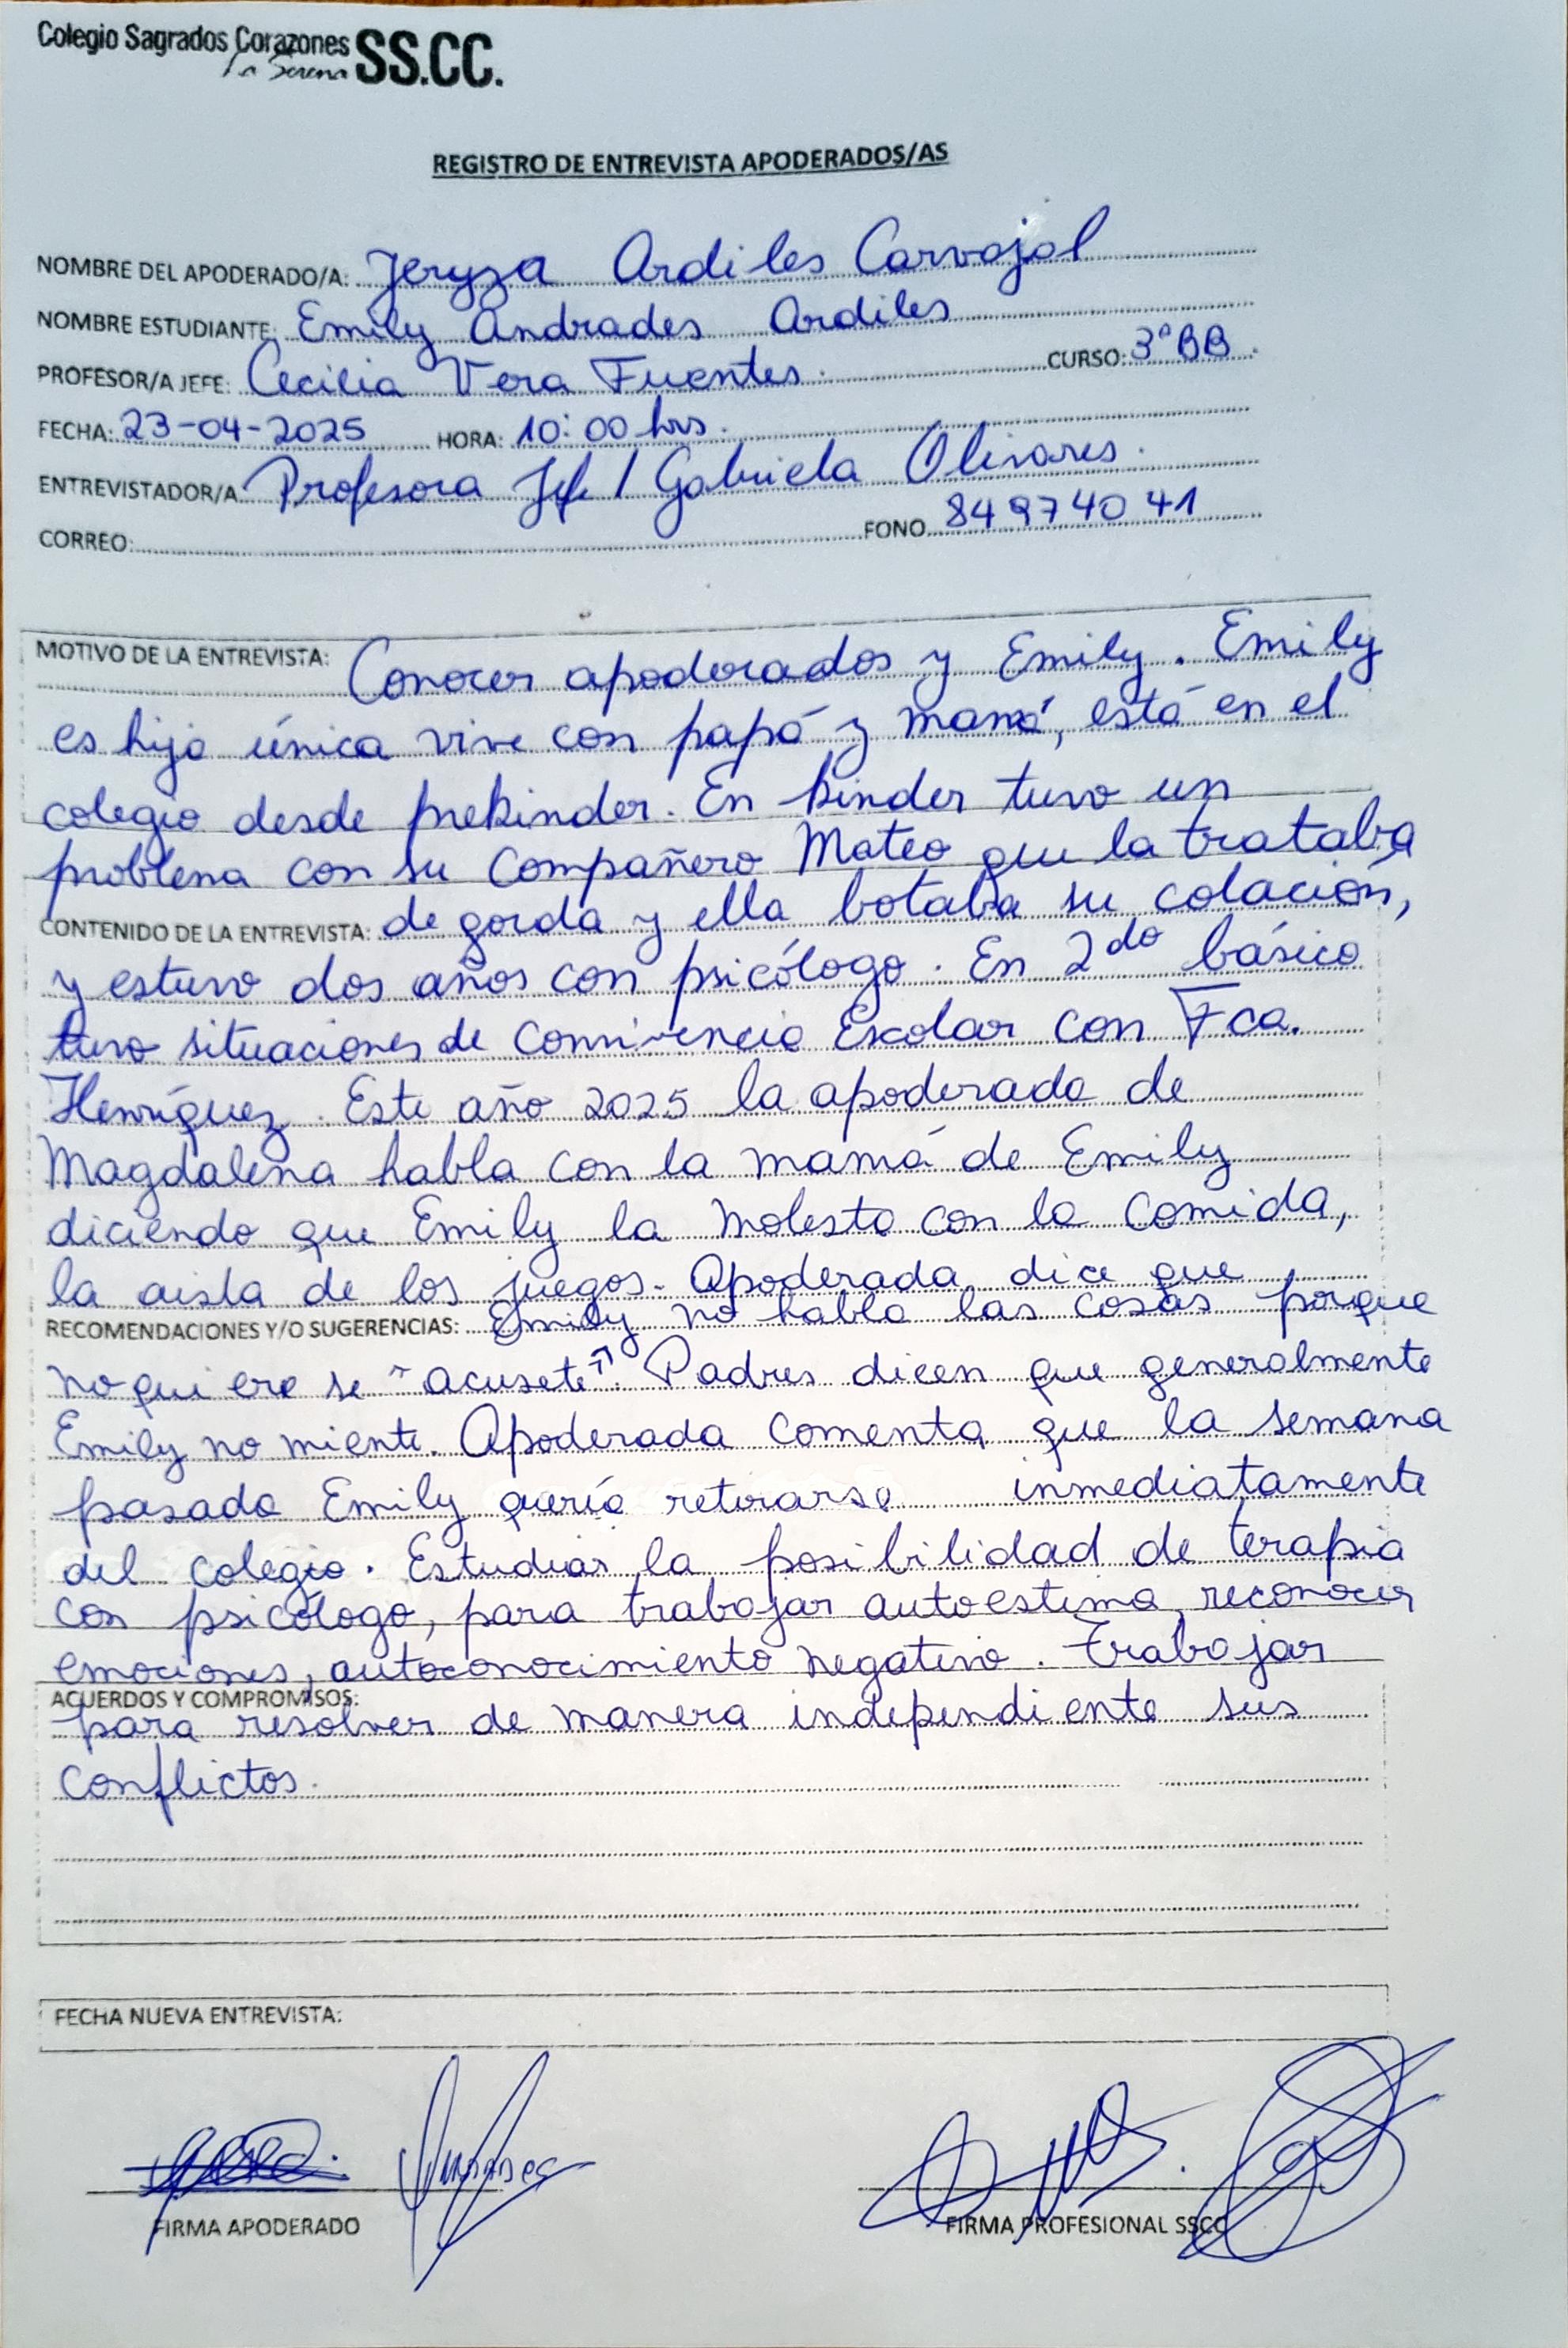 Colegio Sagrados Corazones
La Serena SS.CC.
REGISTRO DE ENTREVISTA APODERADOS/AS
NOMBRE DEL APODERADO/A: Jeryza Ardiles Carvajal
NOMBRE ESTUDIANTE: Emily Andrades Ardiles
PROFESOR/A JEFE: Cecilia Vera Fuentes. CURSO: 3°BB
FECHA: 23-04-2025 HORA: 10:00 hrs.
ENTREVISTADOR/A Profesora Jefe / Gabriela Olivares.
CORREO: FONO 84974041
MOTIVO DE LA ENTREVISTA: Conocer apoderados y Emily. Emily
es hija única vive con papá y mamá, está en el
colegio desde prekinder. En kinder tuvo un
problema con su compañero Mateo que la trataba
CONTENIDO DE LA ENTREVISTA: de gorda y ella botaba su colación,
y estuvo dos años con psicólogo. En 2do básico
tuvo situaciones de Convivencia Escolar con Fca.
Henríquez. Este año 2025 la apoderada de
Magdalena habla con la mamá de Emily
diciendo que Emily la molesta con la comida,
la aisla de los juegos. Apoderada dice que
RECOMENDACIONES Y/O SUGERENCIAS: Emily no habla las cosas porque
no quiere se "acusete". Padres dicen que generalmente
Emily no miente. Apoderada comenta que la semana
pasada Emily quería retirarse inmediatamente
del colegio. Estudiar la posibilidad de terapia
con psicólogo, para trabajar autoestima, reconocer
emociones, autoconocimiento negativo. Trabajar
ACUERDOS Y COMPROMISOS:
para resolver de manera independiente sus
conflictos.
FECHA NUEVA ENTREVISTA:
FIRMA APODERADO FIRMA PROFESIONAL SSCC